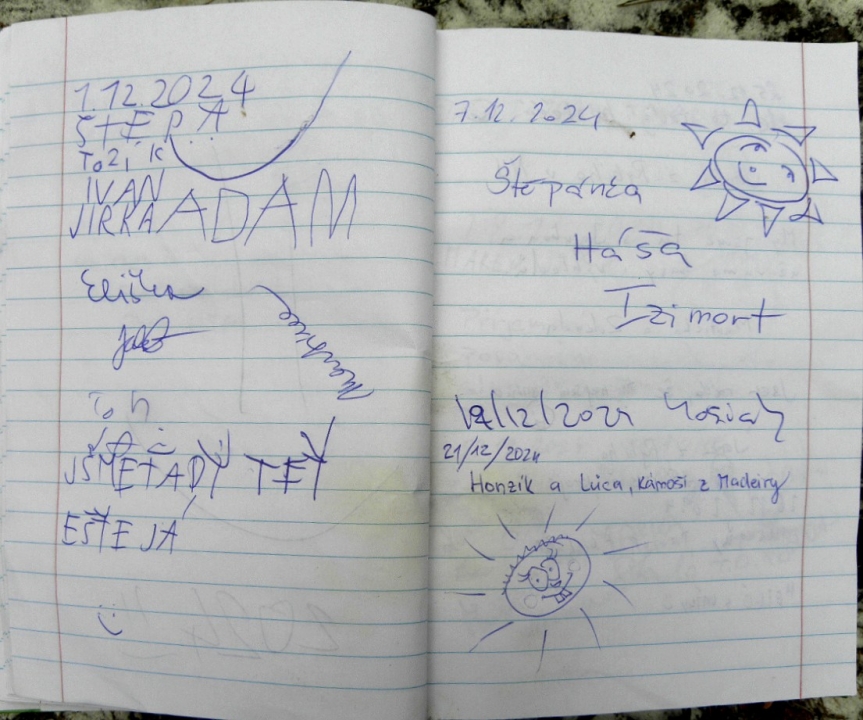 1.12.2024
ŠTĚPÁ
TOŽÍK
IVAN
JIRKA ADAM
Eliška
JSME TADY TEŤ
EŠTĚ JÁ
7.12.2024
Štěpánka
Háša
Izimort
12/2024
21/12/2024
Honzík a Lúca, kámoši z Madeiry